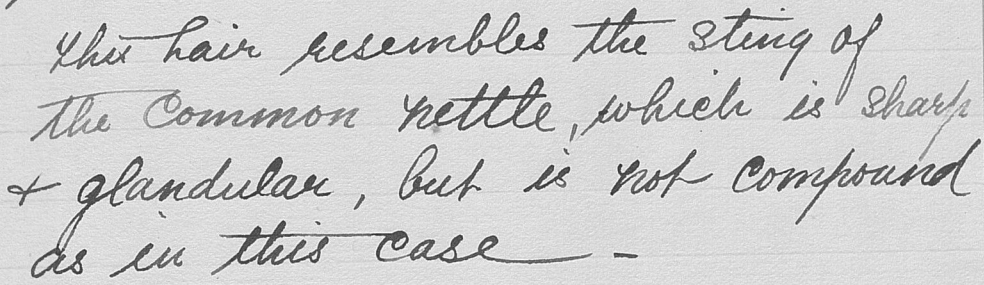 This hair resembles the sting of
the Common nettle, which is sharp
& glandular, but is not compound
as in this case —